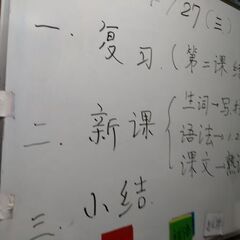 /27(三)
一. 复习.(第二课
二. 新课{生词→写
语法→1.2
课文→熟
三. 小结.